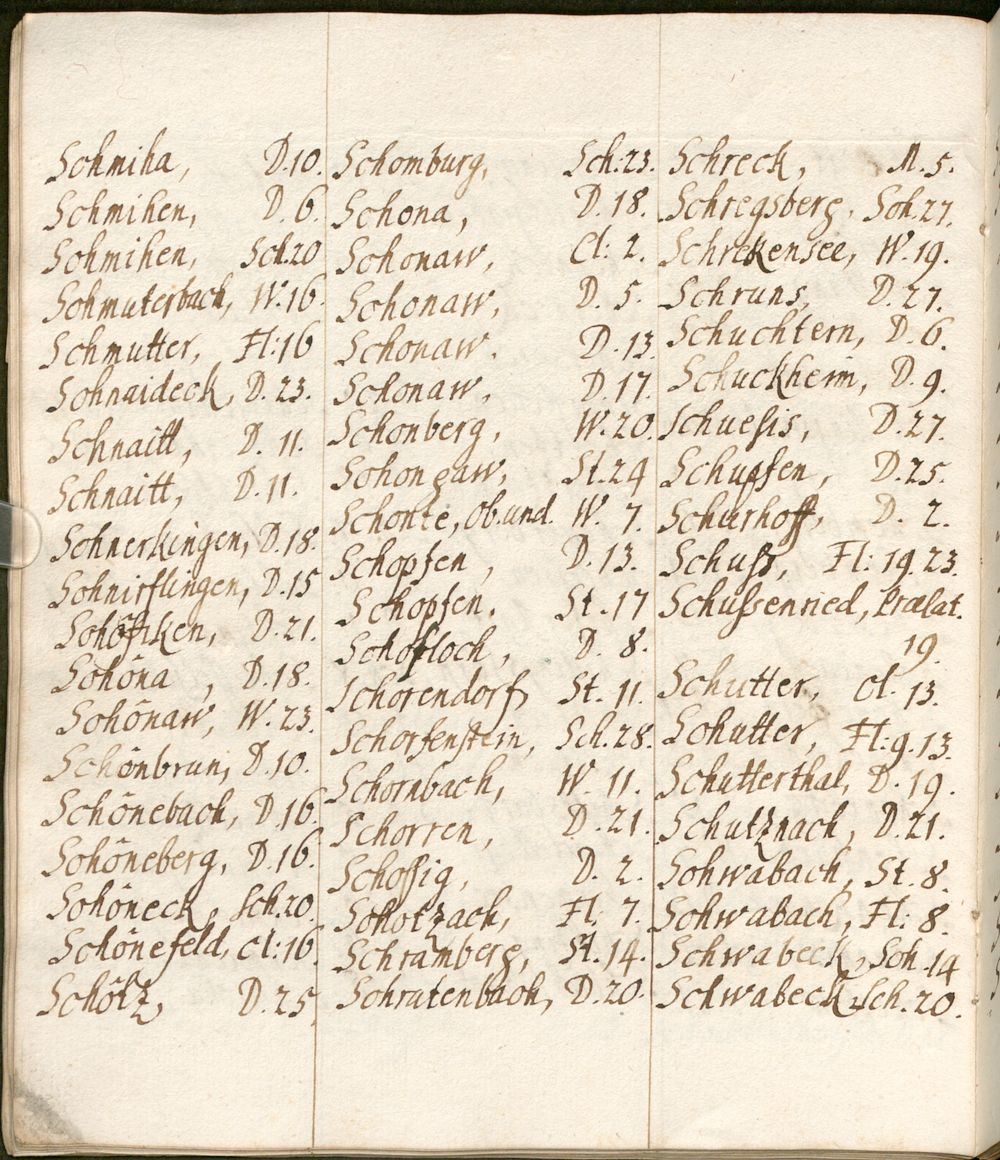 Schmiha, D.10.
Schmihen, D.6.
Schmihen, Sch.20
Schmuterbach, W.16.
Schmutter, Fl:16
Schnaideck, D.23.
Schnaitt, D.11.
Schnaitt, D.11.
Schnerkingen, D.18.
Schnirflingen, D.15
Schöfften, D.21.
Schöna, D.18.
Schönaw, W.23.
Schönbrun, D.10.
Schönebach, D.16.
Schöneberg, D.16.
Schöneck, Sch.20.
Schönefeld, Cl:16.
Schötz, D.25.
Schomburg, Sch:23.
Schona, D.18.
Schonaw, Cl: 2.
Schonaw, D. 5.
Schonaw. D.13.
Schonaw, D.17.
Schonberg, W.20.
Schongaw, St.24
Schonte, Ob.und. W. 7.
Schopfen, D.13.
Schopfen. St.17
Schopfloch, D. 8.
Schorendorf, St. 11.
Schorfenstein, Sch.28.
Schornbach, W. 11.
Schorren, D.21.
Schossig, D. 2.
Schotzach, Fl: 7.
Schramberg, St.14.
Schratenbach, D.20.
Schreck, M. 5.
Schregsberg, Sch.27.
Schrekensee, W.19.
Schruns, D.27.
Schuchtern, D.6.
Schuckheim, D.9.
Schuesis, D.27.
Schupfen, D.25.
Schurhoff, D. 2.
Schuss, Fl: 19.23.
Schussenried, Prælat.
19.
Schutter, Cl. 13.
Schutter, Fl:9.13.
Schutterthal, D.19.
Schutznach, D.21.
Schwabach, St.8.
Schwabach, Fl: 8.
Schwabeck, Sch.14
Schwabeck, Sch.20.